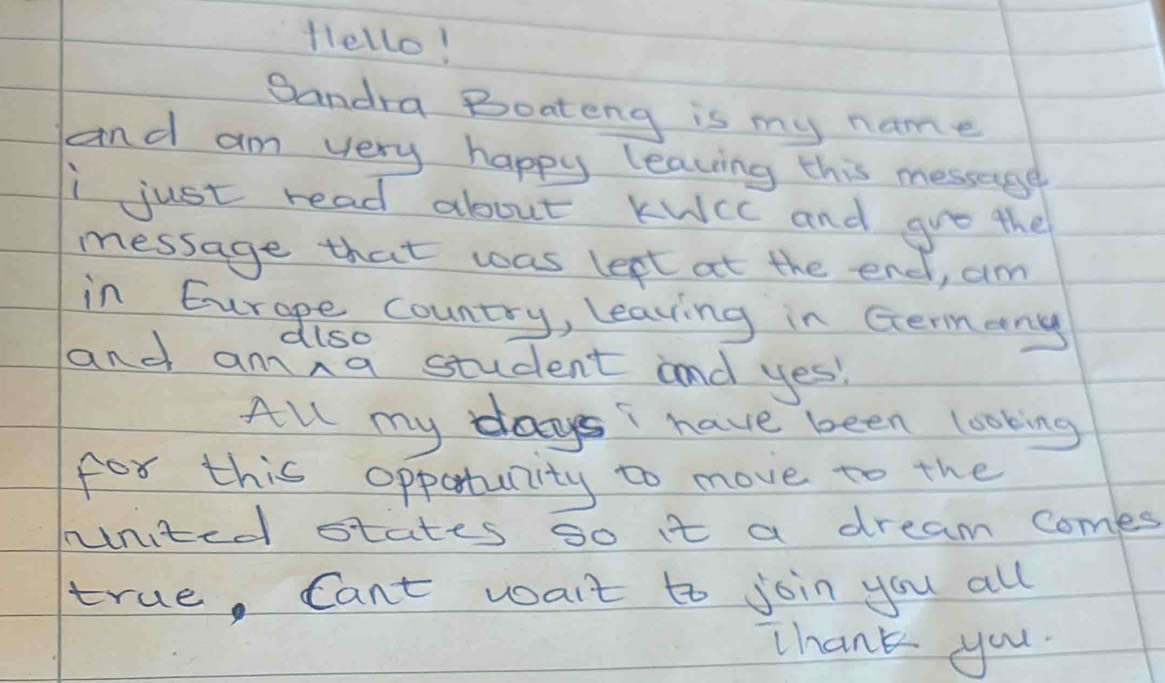 Hello!
Sandra Boateng is my name
and am very happy leaving this message
i just read about KWCC and got the
message that was left at the end, am
in Europe country, leaving in Germany
and am ^ also a student and yes!
All my days i have been looking
for this opportunity to move to the
united states so it a dream comes
true, Cant wait to join you all
Thank you.